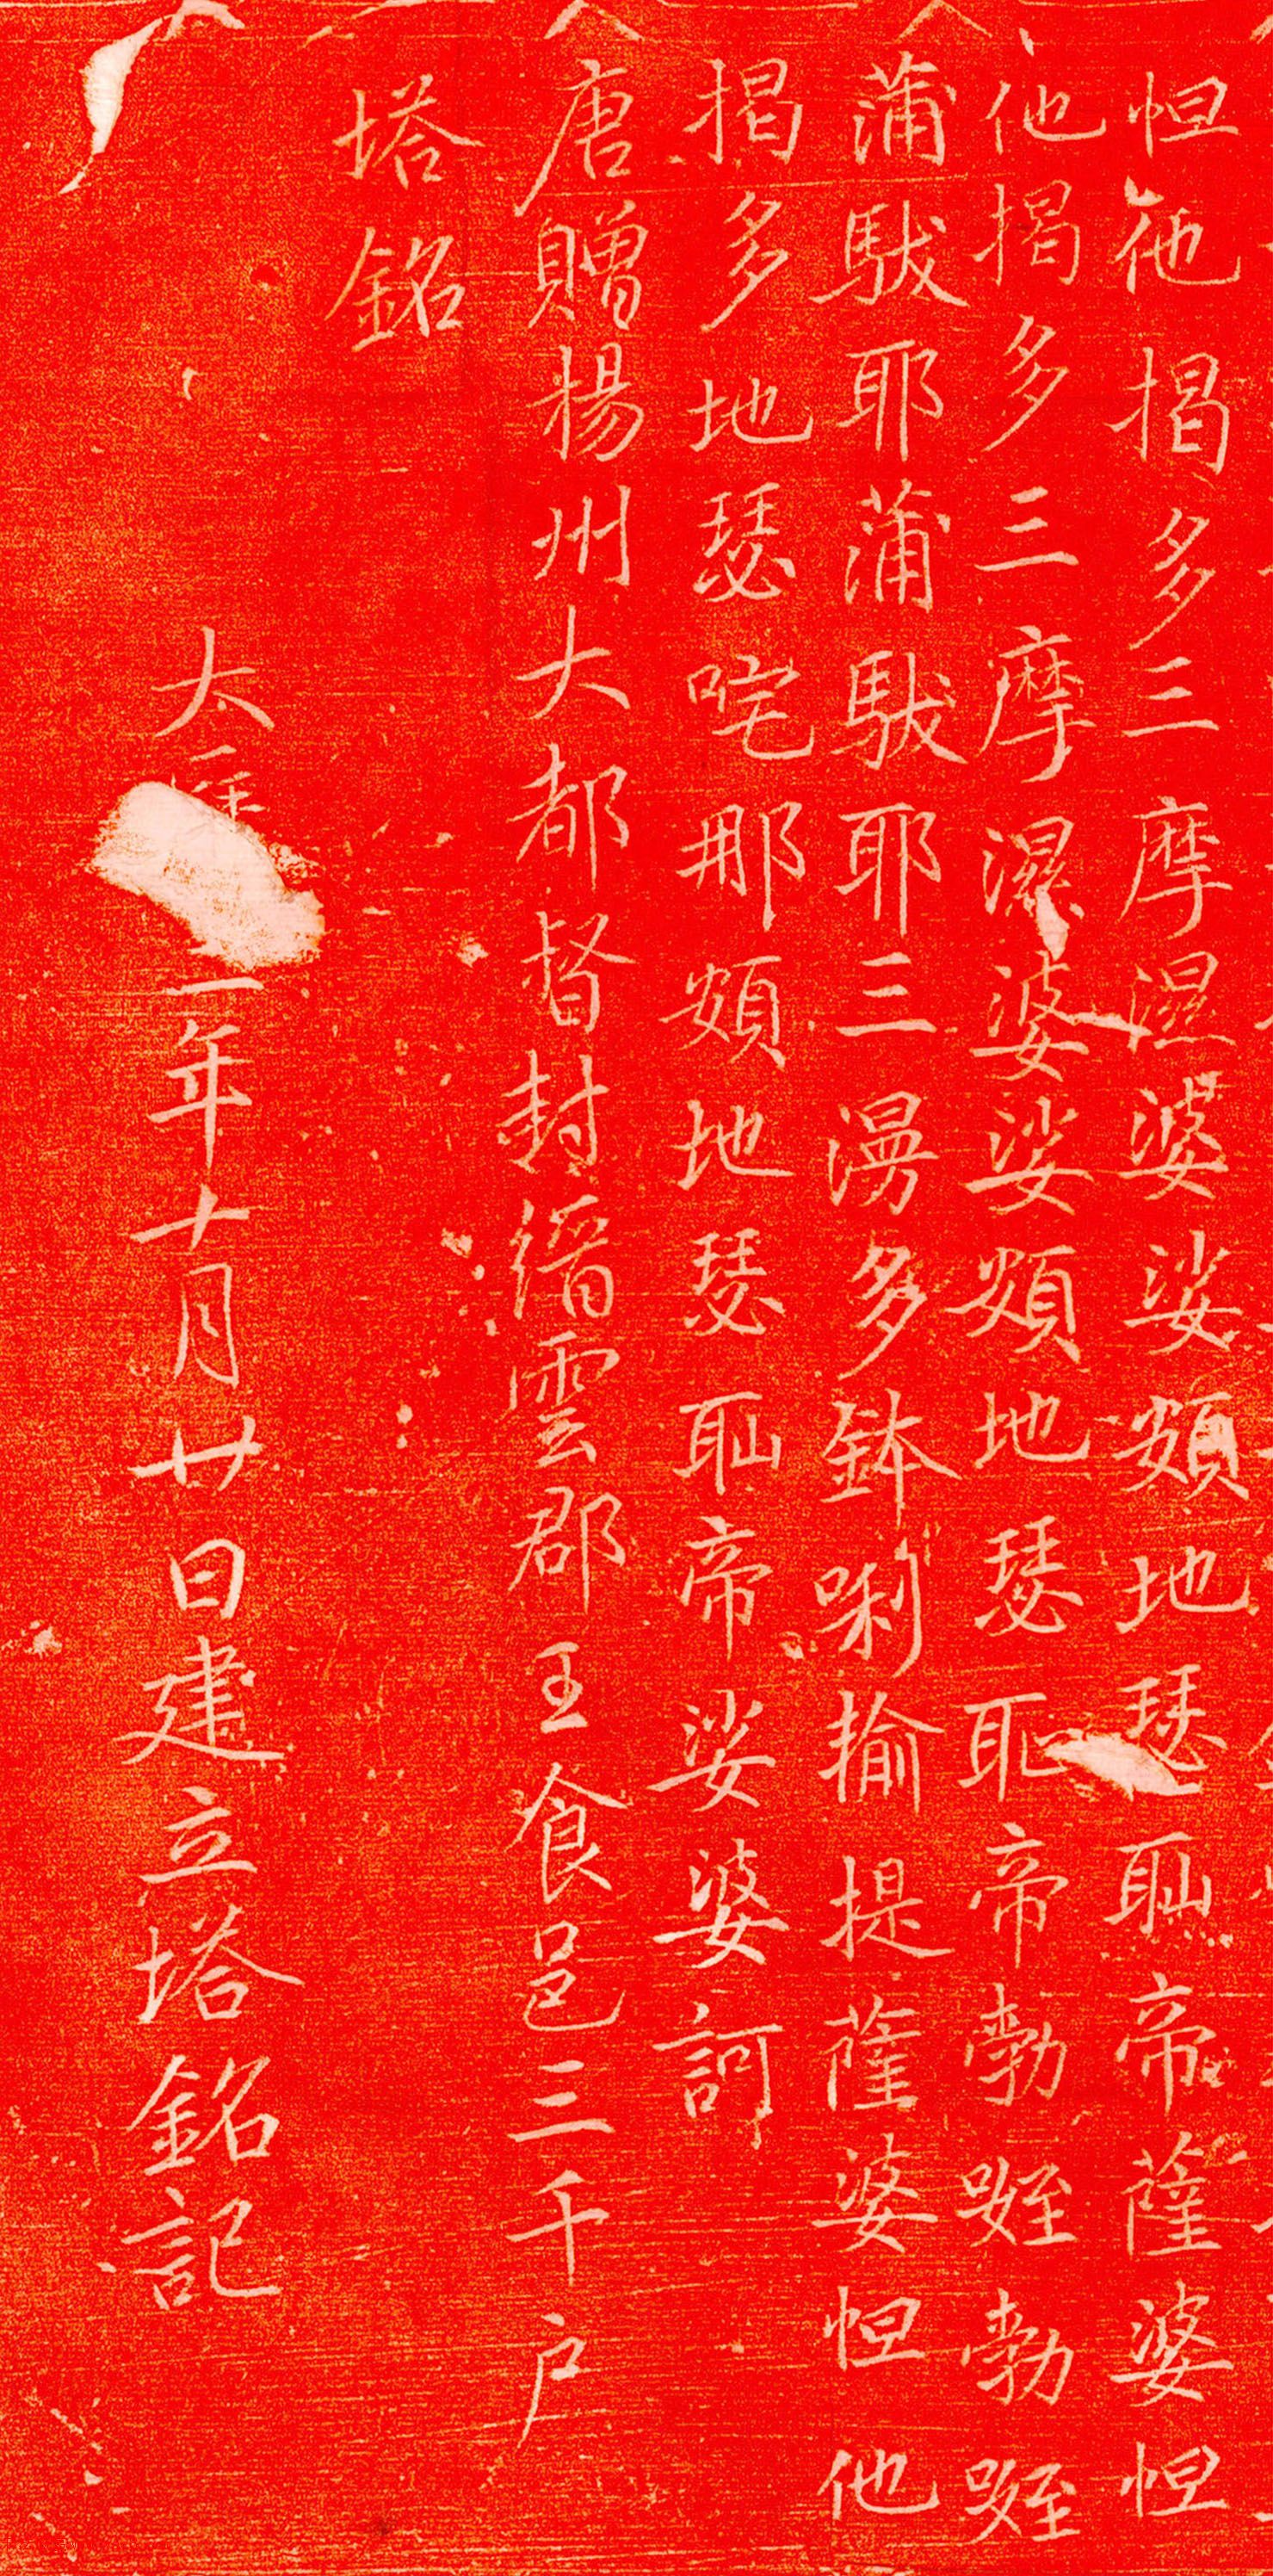 怛他揭多三摩湿婆娑頞地瑟耻帝薩婆怛
他揭多三摩濕婆娑頞地瑟耻帝勃勃
蒲馱耶蒲馱耶三漫多鉢唎揄提薩婆怛他
揭多地瑟咤那頞地瑟耻帝娑婆訶
唐贈揚州大都督封縉雲郡王食邑三千戶
塔銘
大年十月廿日建立塔銘記